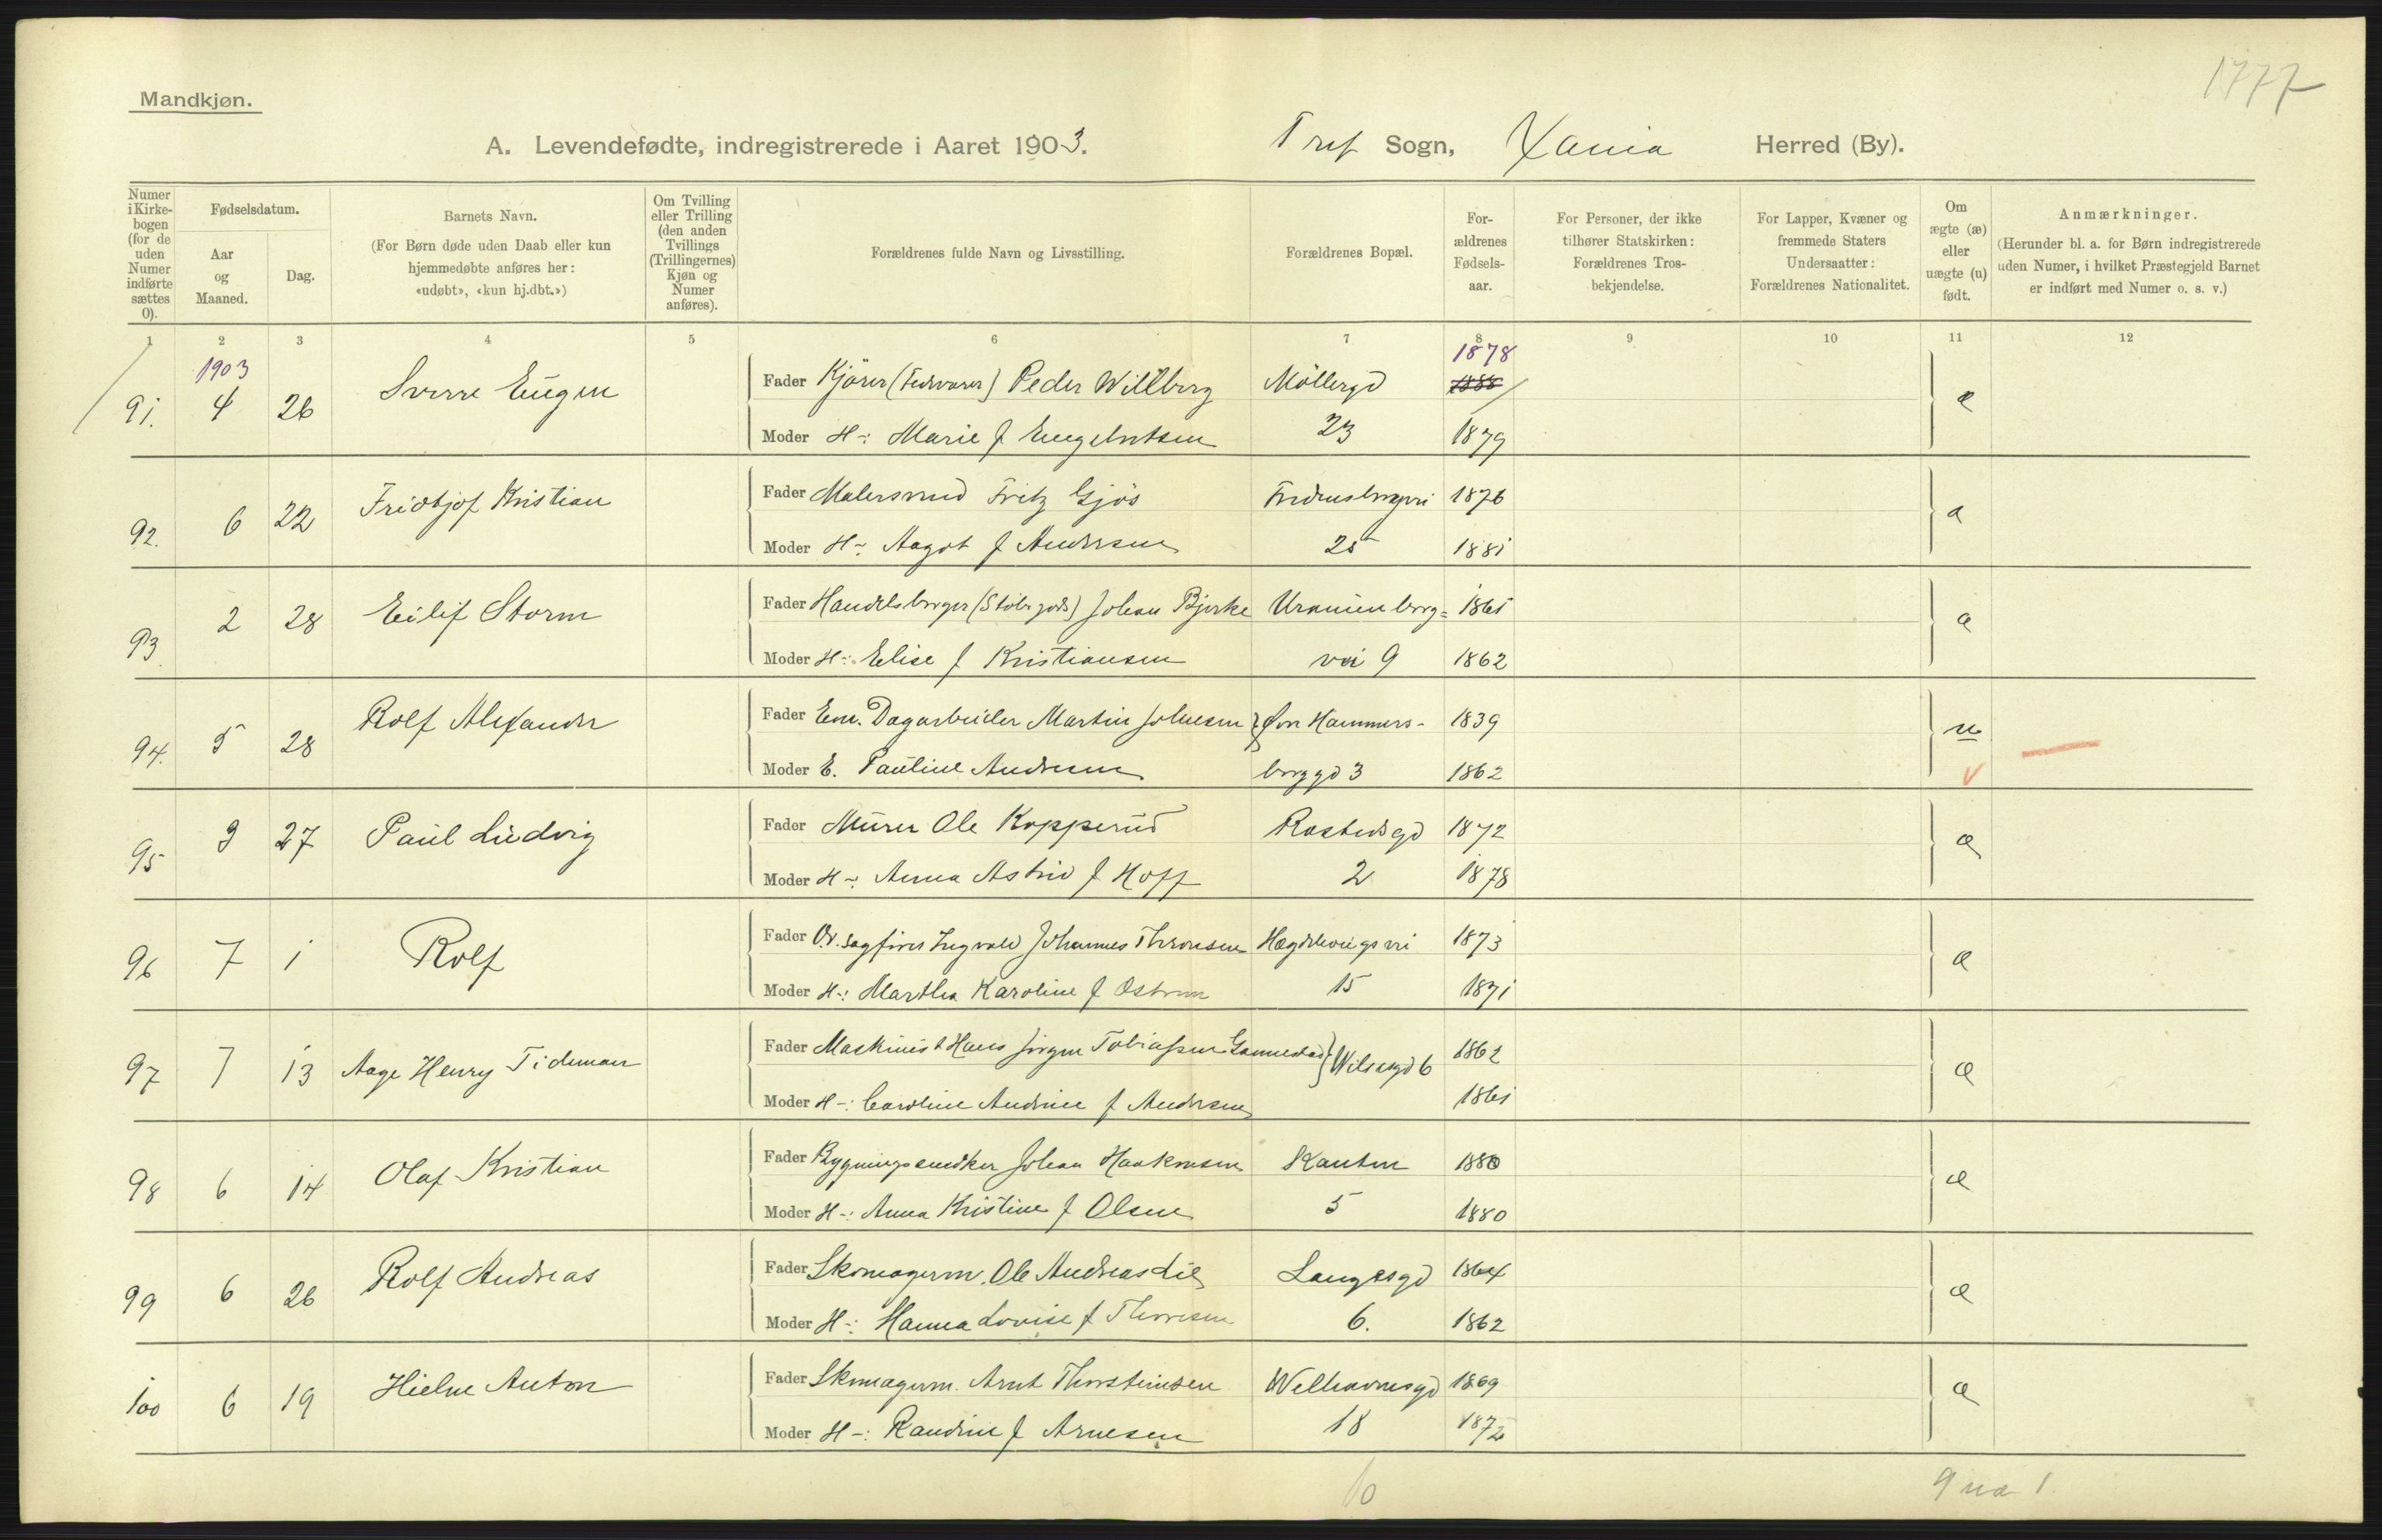 1777
Mandkjøn.
A. Levendefødte, indregistrerede i Aaret 1903. Tref Sogn, Xania Herred (By).
Numer i Kirkebogen (for de uden Numer indførte sættes 0).
Fødselsdatum.
Aar og Maaned.
Dag.
Barnets Navn.
(For Børn døde uden Daab eller kun hjemmedøbte anføres her: «udøbt», «kun hj.dbt.»)
Om Tvilling eller Trilling (den anden Tvillings (Trillingernes) Kjøn og Numer anføres).
Forældrenes fulde Navn og Livsstilling.
Forældrenes Bopæl.
Forældrenes Fødselsaar.
For Personer, der ikke tilhører Statskirken: Forældrenes Trosbekjendelse.
For Lapper, Kvæner og fremmede Staters Undersaatter: Forældrenes Nationalitet.
Om ægte (æ) eller uægte (u) født.
Anmærkninger.
(Herunder bl. a. for Børn indregistrerede uden Numer, i hvilket Præstegjeld Barnet er indført med Numer o. s. v.)
1 2 3 4 5 6 7 8 9 10 11 12
1903 1878
91. 4 26 Sverre Eugen Fader Kjører (Fedevarer) Peder Willberg Möllergd 1888 æ
Moder H-: Marie f Engebretsen 23 1879
92. 6 22 Fridtjof Kristian Fader Malersvend Fritz Gjös 1876 æ
Moder H-: Aagot f Andersen 25 1881
93 2 28 Eilif Storm Fader Handelsborger (Stöbegods) Johan Bjerke Uranienborg= 1861 æ
Moder H-: Elise f Kristiansen vei 9 1862
94. 5 28 Rolf Alexander Fader Em. Dagarbeider Martin Johnsen Övre Hammers- 1839 u
Moder E. Pauline Andresen borggd 3 1862
95 3 27 Paul Ludvig Fader Murer Ole Kopperud Rostedsgd 1872 æ
Moder H-: Anna Astrid f Hoff 2 1878
96 7 1 Rolf Fader Ov. sagförer Ingvald Johannes Thronsen Hægdehougsvei 1873 æ
Moder H-: Marthea Karoline f 15 1871
97 7 13 Aage Henry Tideman Fader Maskinist Hans Jörgen Tobiassen Gannestad Wilsesgd 6 1862 æ
Moder H-: Caroline Andrine f Andersen 1861
98 6 14 Olaf Kristian Fader Bygningssnedker Johan Haakonsen Kanten 1880 æ
Moder H-: Anna Kristine f Olsen 5 1880
99 6 26 Rolf Andreas Fader Skomagerm. Ole Andreas Lie Langesgd 1864 æ
Moder H-: Hanna Lovise f Thoresen 6. 1862
100 6 19 Hielm Anton Fader Skomagerm. Arnt Thorsteinsen Welhavensgd 1869 æ
Moder H-: Randine f Arnesen 18 1872
10 9 uæ 1